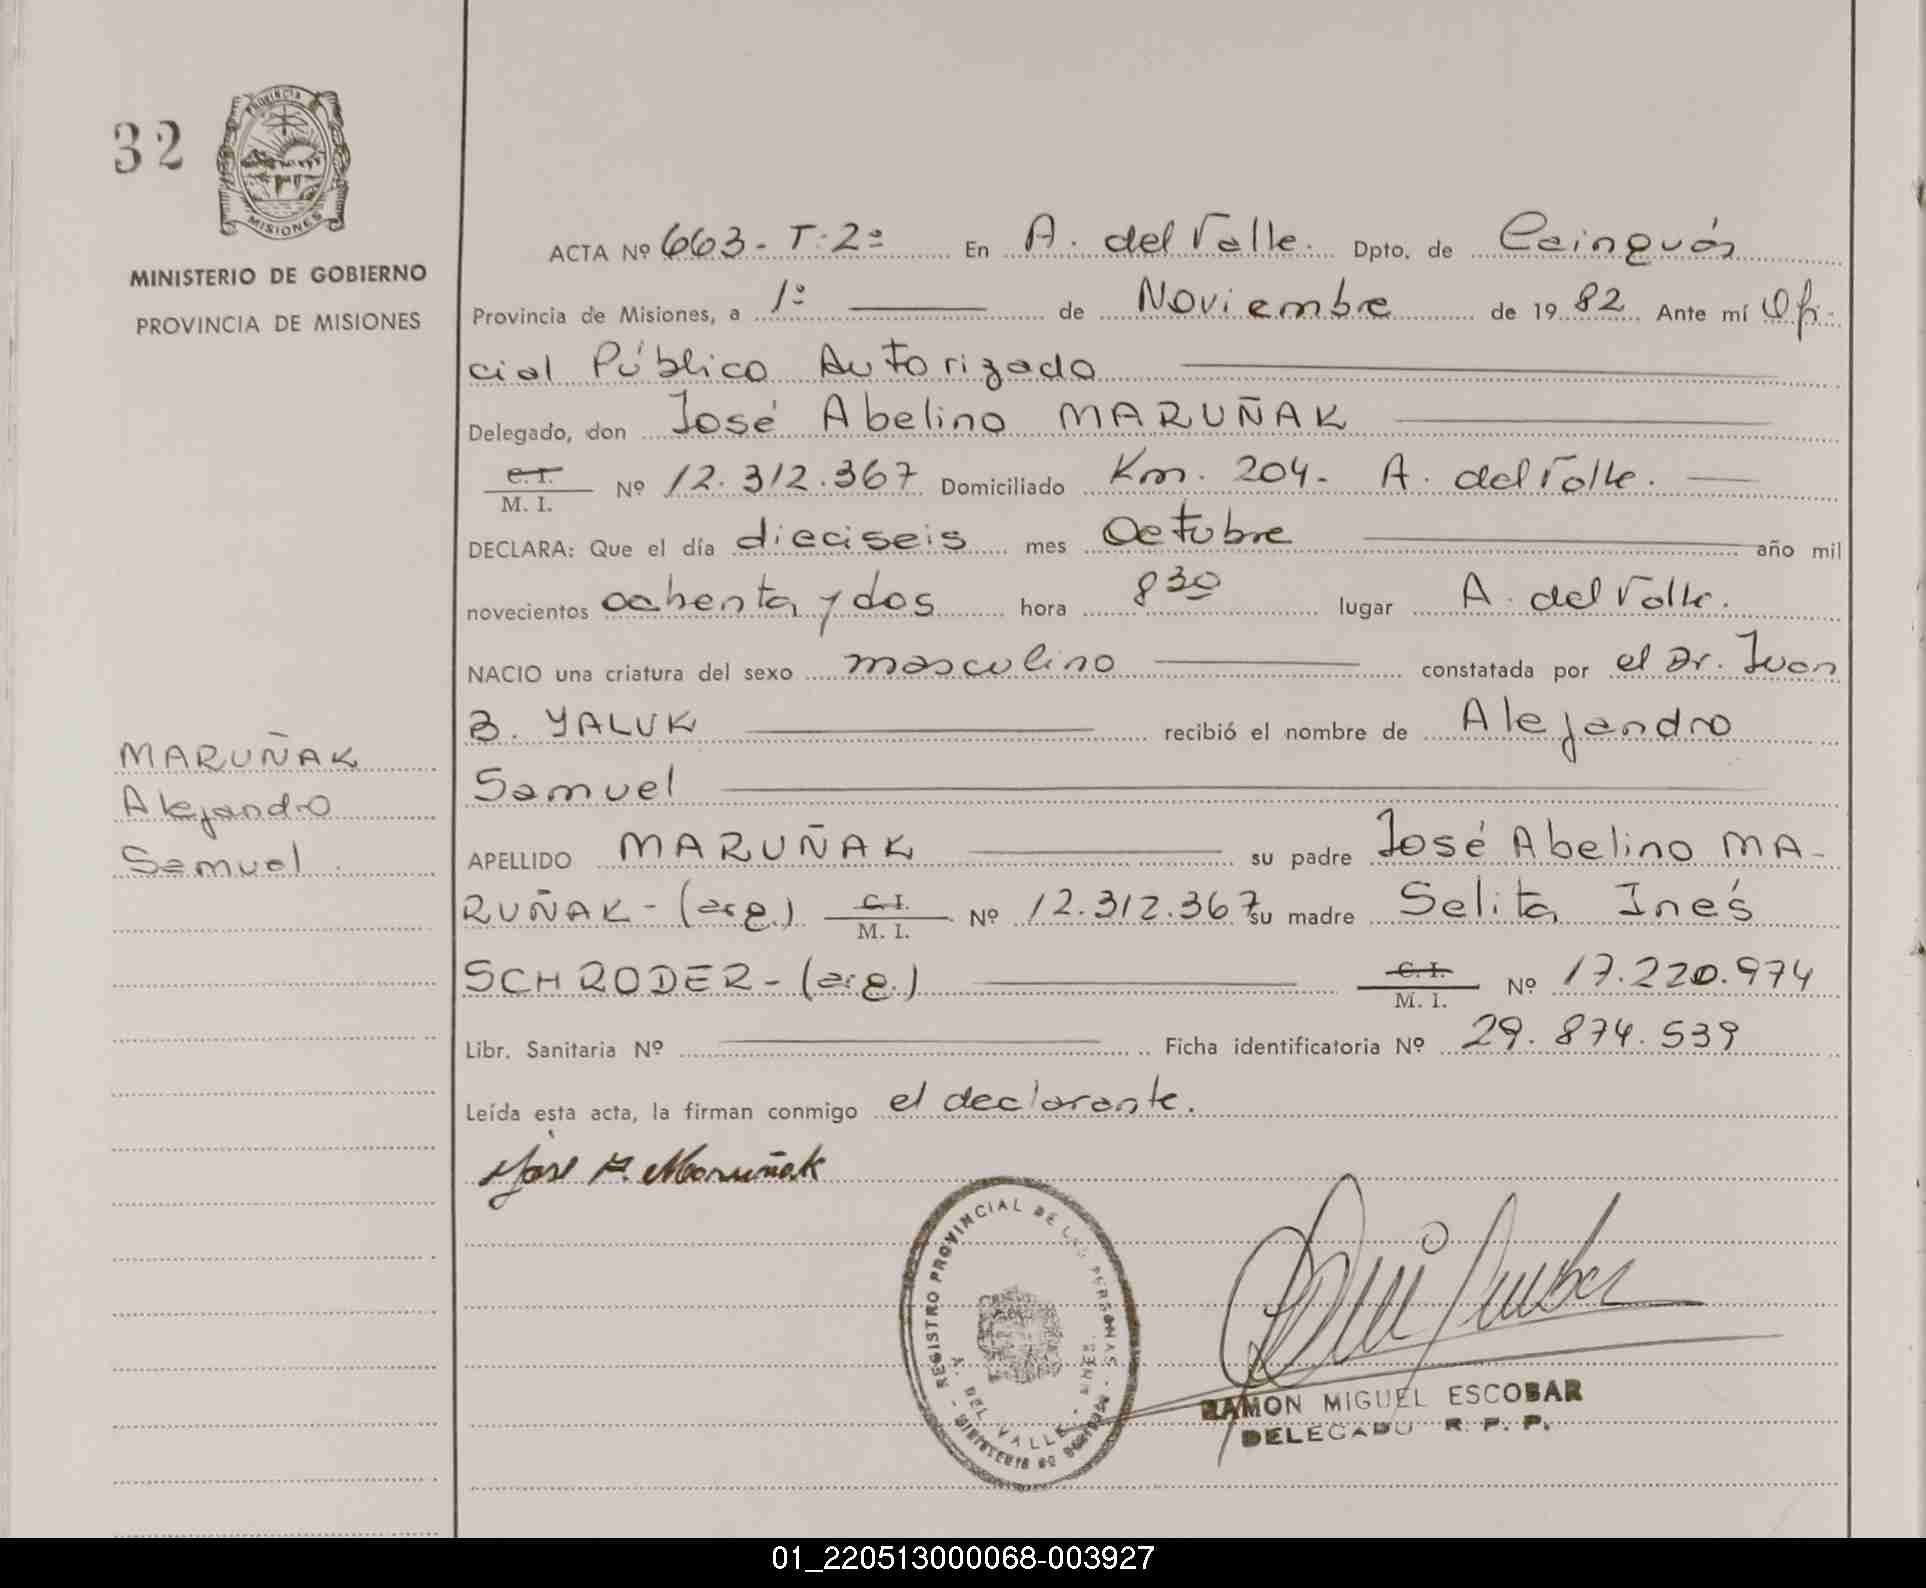 32
PROVINCIA
MISIONES
MINISTERIO DE GOBIERNO
PROVINCIA DE MISIONES
ACTA Nº 663- T:2º En A. del Valle. Dpto. de Cainguás
Provincia de Misiones, a 1º de Noviembre de 1982 Ante mí Ofi-
cial Público Autorizado
Delegado, don José Abelino MARUÑAK
C.I. M. I. Nº 12.312.367 Domiciliado Km. 204- A. del Valle.
DECLARA: Que el día dieciseis mes Octubre año mil
novecientos ochenta y dos hora 8 30 lugar A. del Valle.
NACIO una criatura del sexo masculino constatada por el Dr. Juan
B. YALUK recibió el nombre de Alejandro
Samuel
MARUÑAK
Alejandro
Samuel
APELLIDO MARUÑAK su padre José Abelino MA-
RUÑAK-(arg.) C.I. M. I. Nº 12.312.367 su madre Selita Inés
SCHRODER-(arg.) C.I. M. I. Nº 17.220.974
Libr. Sanitaria Nº Ficha identificatoria Nº 29.874.539
Leída esta acta, la firman conmigo el declarante.
José A. Maruñak
REGISTRO PROVINCIAL DE LAS PERSONAS
A. DEL VALLE
MINISTERIO DE GOBIERNO
RAMON MIGUEL ESCOBAR
DELEGADO R. P. P.
01_220513000068-003927